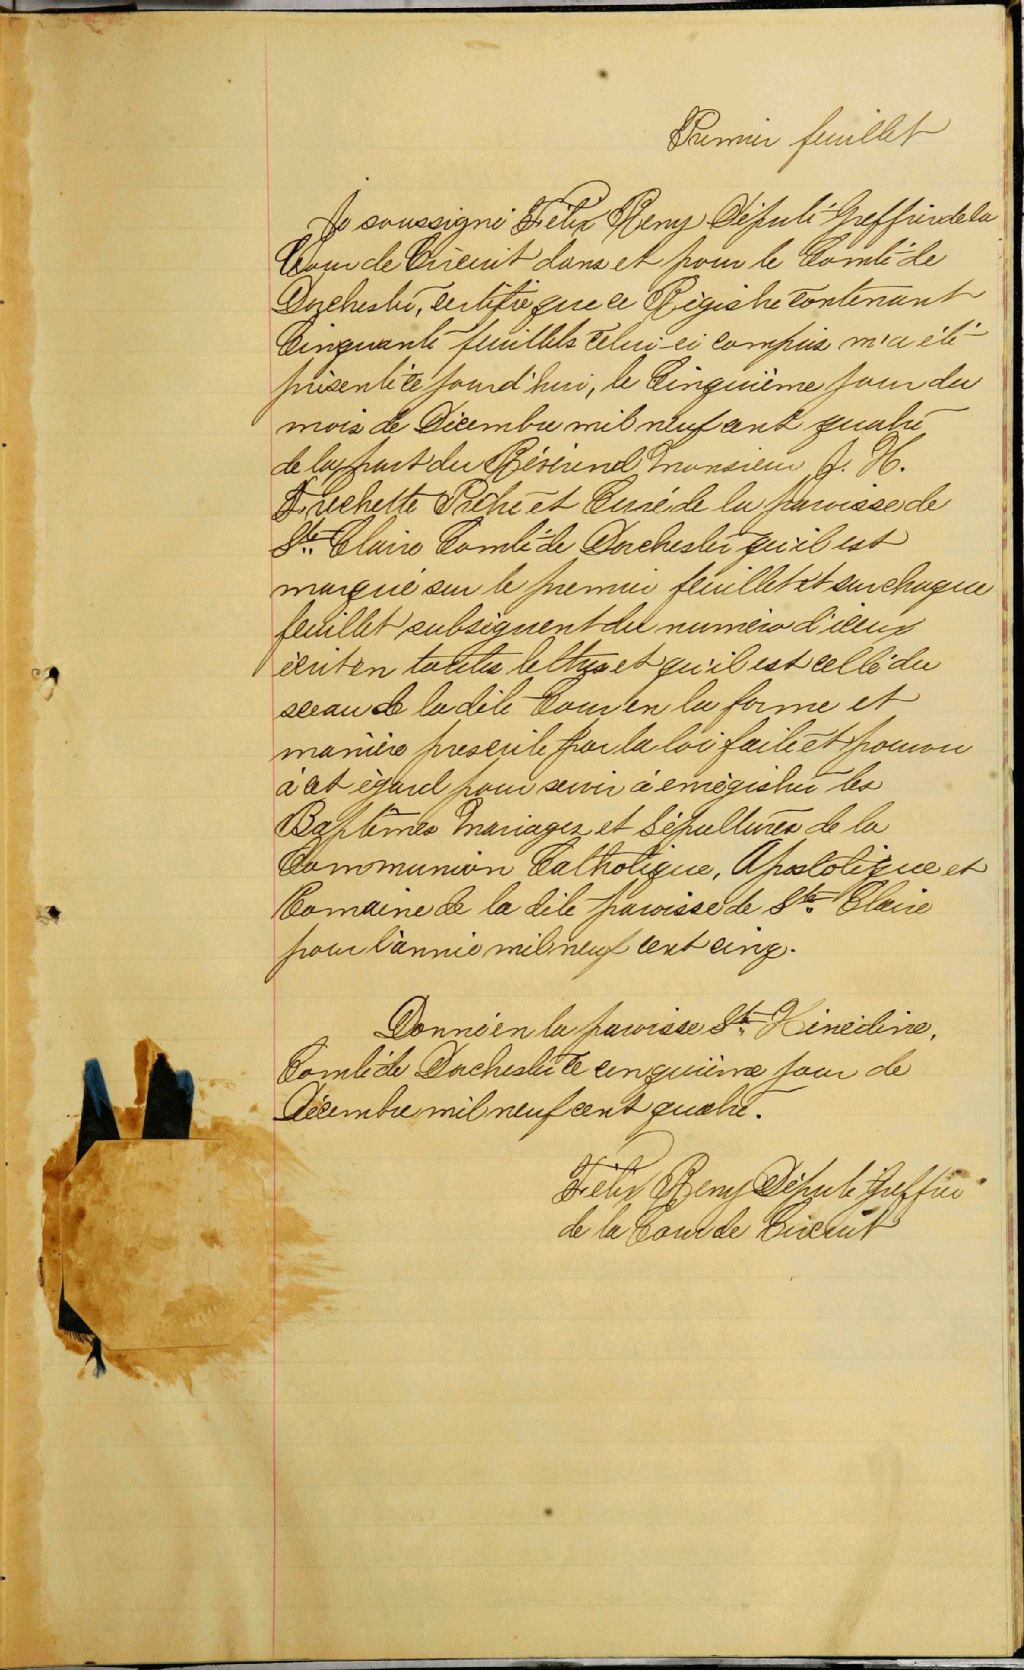 Premier feuillet
Je soussigné Félix Remy Député-Greffier de la
Cour de Circuit dans et pour le Comté de
Dorchester, certifie que ce Régistre contenant
Cinquante feuillets celui-ci compris m'a été
présenté ce jourd'hui, le Cinquième jour du
mois de Décembre mil neuf cent quatre
de la part du Révérend Monsieur J. H.
Frechette Prêtre et Curé de la paroisse de
Ste. Claire Comté de Dorchester qu'il est
marqué sur le premier feuillet et sur chaque
feuillet subséquent du numéro d'iceux
écrit en toutes lettres et qu'il est cellé du
sceau de la dite Cour en la forme et
manière prescrite par la loi faite et pourvu
à cet égard pour servir à enrégistrer les
Baptêmes Mariages et Sépultures de la
Communion Catholique, Apostolique et
Romaine de la dite paroisse de Ste. Claire
pour l'année mil neuf cent cinq.
Donné en la paroisse Ste. Hénédine,
Comté de Dorchester ce cinquième jour de
Décembre mil neuf cent quatre.
Félix Remy Député Greffier
de la Cour de Circuit